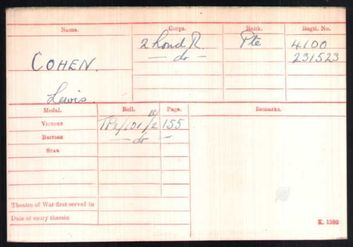 Name. Corps. Rank. Regtl. No.
COHEN. 2 Lond R. Pte 4100
— do — 231523
Lewis.
Medal. Roll. Page. Remarks.
Victory TP4/101 155
British — do —
Star
Theatre of War first served in
Date of entry therein
K. 1380